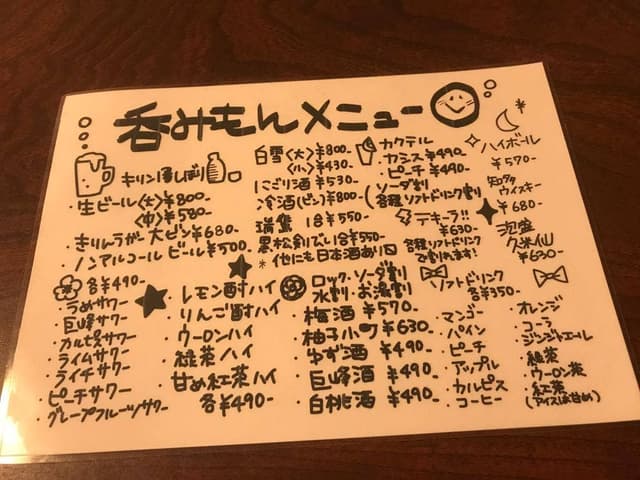 呑みもんメニュー
キリン一番しぼり
・生ビール〈大〉¥800-
〈中〉¥580-
・きりんラガー大ビン¥680-
・ノンアルコールビール¥500-
各¥490-
・うめサワー
・巨峰サワー
・カルピスサワー
・ライムサワー
・ライチサワー
・ピーチサワー
・グレープフルーツサワー
・レモン酎ハイ
・りんご酎ハイ
・ウーロンハイ
・緑茶ハイ
・甘め紅茶ハイ
各¥490-
白雪〈大〉¥800-
〈小〉¥430-
にごり酒¥530-
冷酒(ビン)¥800-
瑞鷹 1合¥550-
黒松剣びし1合¥550-
*他にも日本酒あり
ロック・ソーダ割
水割・お湯割
・梅酒¥570-
・柚子小町¥630-
・ゆず酒¥490-
・巨峰酒¥490-
・白桃酒¥490-
カクテル
・カシス¥490-
・ピーチ¥490-
(ソーダ割
各種ソフトドリンク割)
テキーラ!!
¥630-
各種ソフトドリンク
で割れます!
ソフトドリンク
各¥350-
・マンゴー
・パイン
・ピーチ
・アップル
・カルピス
・コーヒー
・オレンジ
・コーラ
・ジンジャエール
・緑茶
・ウーロン茶
・紅茶
(アイスは甘め)
ハイボール
¥570-
知多
ウイスキー
¥680-
泡盛
久米仙
¥630-